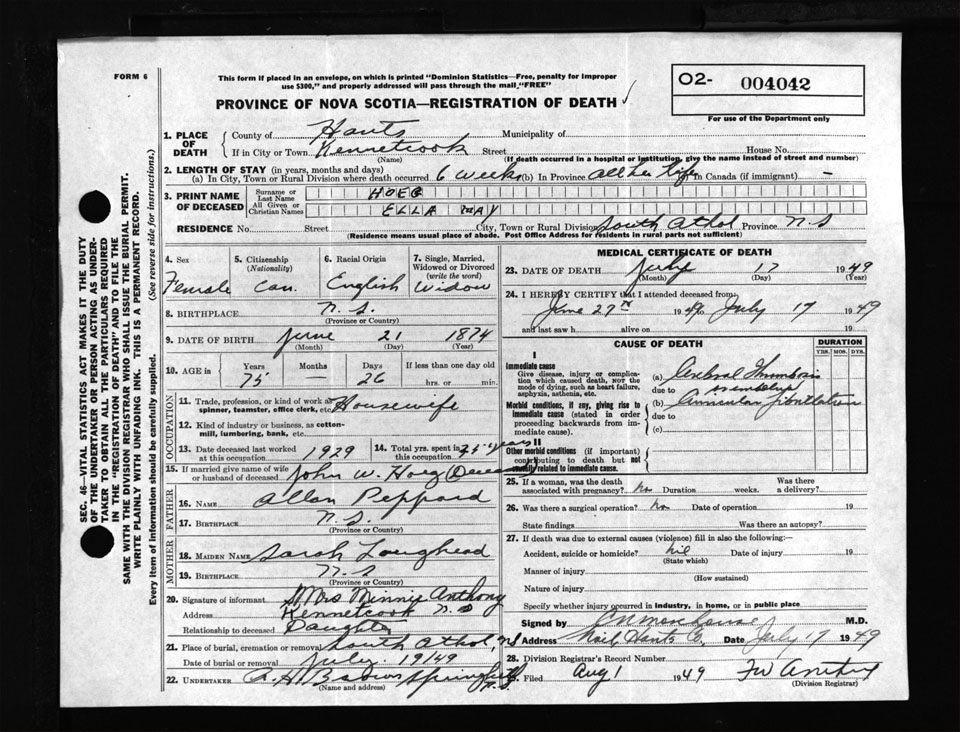 FORM 6
This form if placed in an envelope, on which is printed "Dominion Statistics—Free, penalty for improper
use $300," and properly addressed will pass through the mail, "FREE"
PROVINCE OF NOVA SCOTIA—REGISTRATION OF DEATH
O2- 004042
For use of the Department only
SEC. 46—VITAL STATISTICS ACT MAKES IT THE DUTY
OF THE UNDERTAKER OR PERSON ACTING AS UNDER-
TAKER TO OBTAIN ALL THE PARTICULARS REQUIRED
IN THE "REGISTRATION OF DEATH" AND TO FILE THE
SAME WITH THE DIVISION REGISTRAR WHO SHALL ISSUE THE BURIAL PERMIT.
WRITE PLAINLY WITH UNFADING INK. THIS IS A PERMANENT RECORD.
Every item of information should be carefully supplied. (See reverse side for instructions.)
1. PLACE OF DEATH
County of Hants Municipality of
If in City or Town Kennetcook Street House No.
(Name) (If death occurred in a hospital or institution, give the name instead of street and number)
2. LENGTH OF STAY (in years, months and days)
(a) In City, Town or Rural Division where death occurred 6 weeks (b) In Province all her life In Canada (if immigrant) —
3. PRINT NAME OF DECEASED
Surname or Last Name HOEG
All Given or Christian Names ELLA MAY
RESIDENCE No. Street City, Town or Rural Division South Athol Province N.S
(Residence means usual place of abode. Post Office Address for residents in rural parts not sufficient)
4. Sex Female
5. Citizenship (Nationality) Can.
6. Racial Origin English
7. Single, Married, Widowed or Divorced (write the word) Widow
8. BIRTHPLACE N.S.
(Province or Country)
9. DATE OF BIRTH June 21 1874
(Month) (Day) (Year)
10. AGE in Years Months Days If less than one day old
75 — 26 hrs. or min.
OCCUPATION
11. Trade, profession, or kind of work as spinner, teamster, office clerk, etc. Housewife
12. Kind of industry or business, as cotton-mill, lumbering, bank, etc.
13. Date deceased last worked at this occupation 1929
14. Total yrs. spent in this occupation 25 years
15. If married give name of wife or husband of deceased John W. Hoeg (Deceased)
FATHER
16. Name Allan Peppard
17. Birthplace N.S.
(Province or Country)
MOTHER
18. Maiden Name Sarah Loughead
19. Birthplace N.S
(Province or Country)
20. Signature of informant Mrs Minnie Anthony
Address Kennetcook N.S
Relationship to deceased Daughter
21. Place of burial, cremation or removal South Athol, NS
Date of burial or removal July 19/49
22. UNDERTAKER A. H. Brown
N.S.
(Name and address)
MEDICAL CERTIFICATE OF DEATH
23. DATE OF DEATH 17 1949
(Month) (Day) (Year)
24. I HEREBY CERTIFY that I attended deceased from
June 27 1949 to July 17 1949
and last saw h alive on 19
CAUSE OF DEATH
DURATION
YRS. MOS. DYS.
I
Immediate cause
Give disease, injury or complication which caused death, NOR the mode of dying, such as heart failure, asphyxia, asthenia, etc.
(a) Cerebral Thrombosis
due to
Morbid conditions, if any, giving rise to immediate cause (stated in order proceeding backwards from immediate cause).
(b) Auricular fibrillation
due to
(c)
II
Other morbid conditions (if important) contributing to death but not causally related to immediate cause.
25. If a woman, was the death associated with pregnancy? No Duration weeks. Was there a delivery?
26. Was there a surgical operation? No Date of operation 19
State findings Was there an autopsy?
27. If death was due to external causes (violence) fill in also the following:—
Accident, suicide or homicide? nil Date of injury 19
(State which)
Manner of injury
(How sustained)
Nature of injury
Specify whether injury occurred in industry, in home, or in public place
Signed by M.D.
Address Noel, Hants Co. Date July 17 1949
28. Division Registrar's Record Number
29. Filed Aug 1 1949 FW Anthony
(Division Registrar)